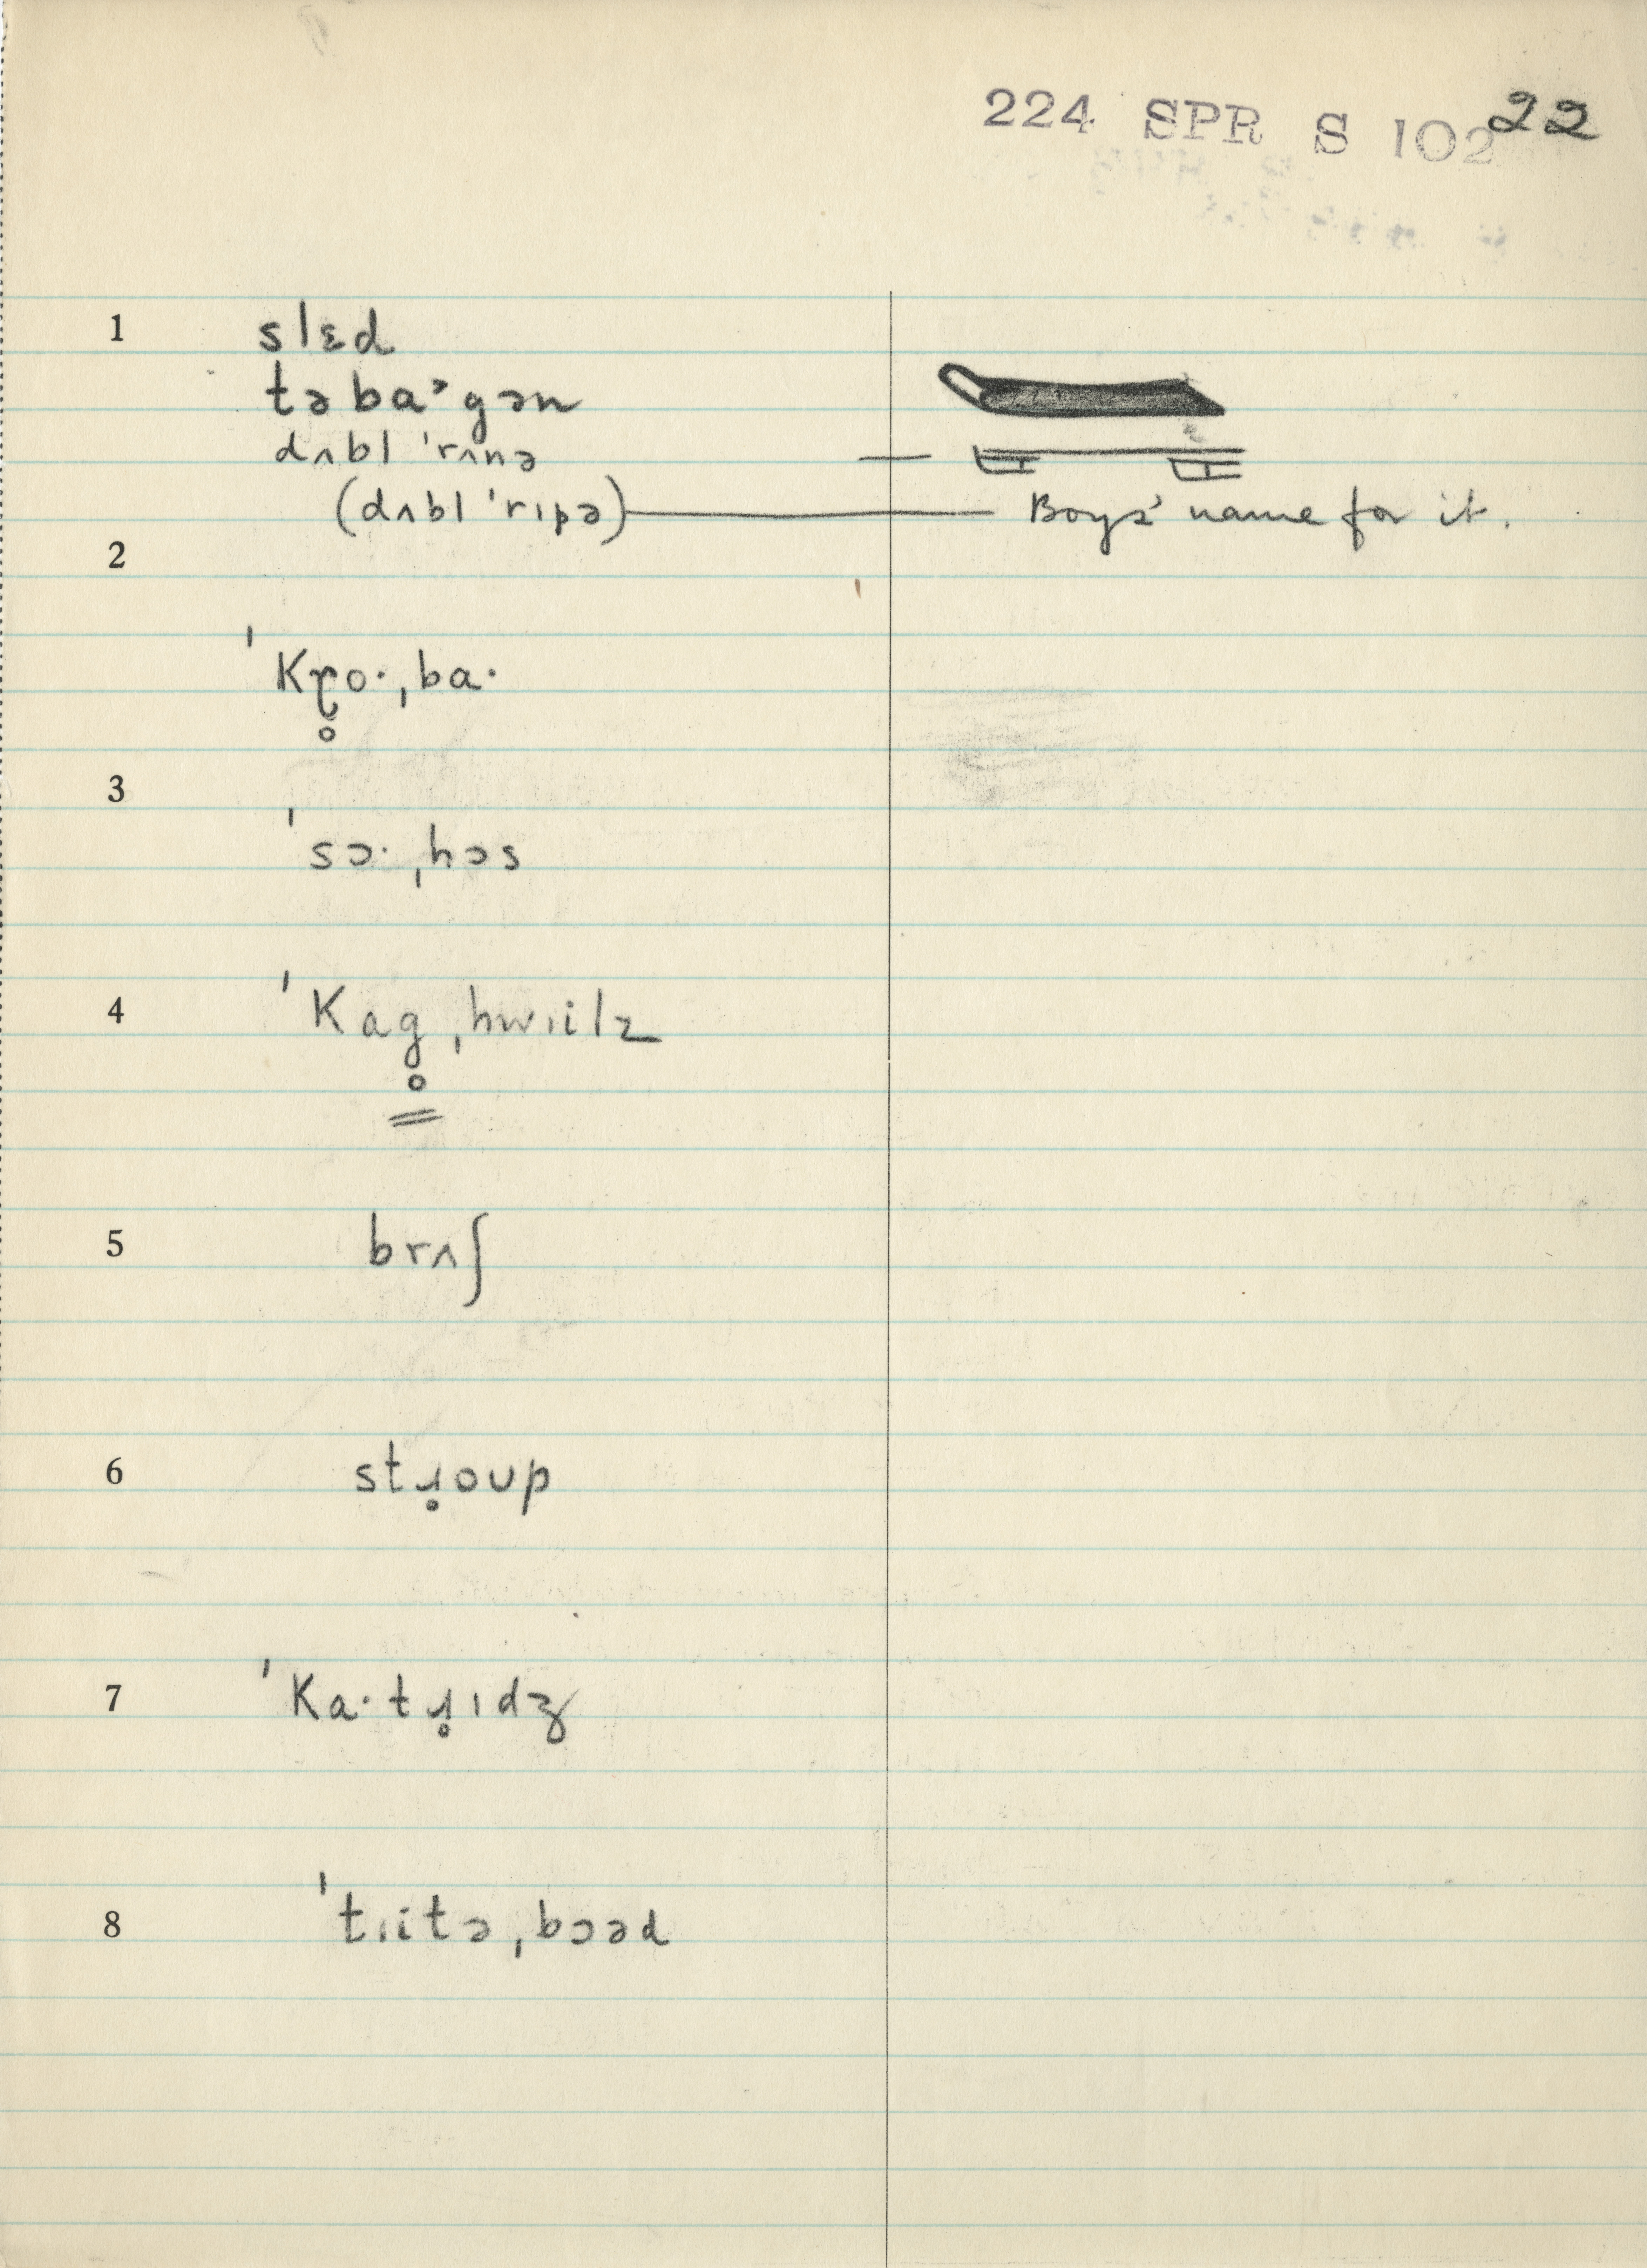 224 SPR S 102 22
1 slɛd
təbaˀgən
dʌbl ˈrʌnə —
(dʌbl ˈrɪpə) — Boys' name for it.
2
ˈkɽ̥oˑˌbaˑ
3
ˈsɔˑˌhɔs
4 ˈkag̥ˌhwɪilz
5 brʌʃ
6 stɹ̥oup
7 ˈkaˑtɹ̥ɪdʒ
8 ˈtɪitəˌbɔəd